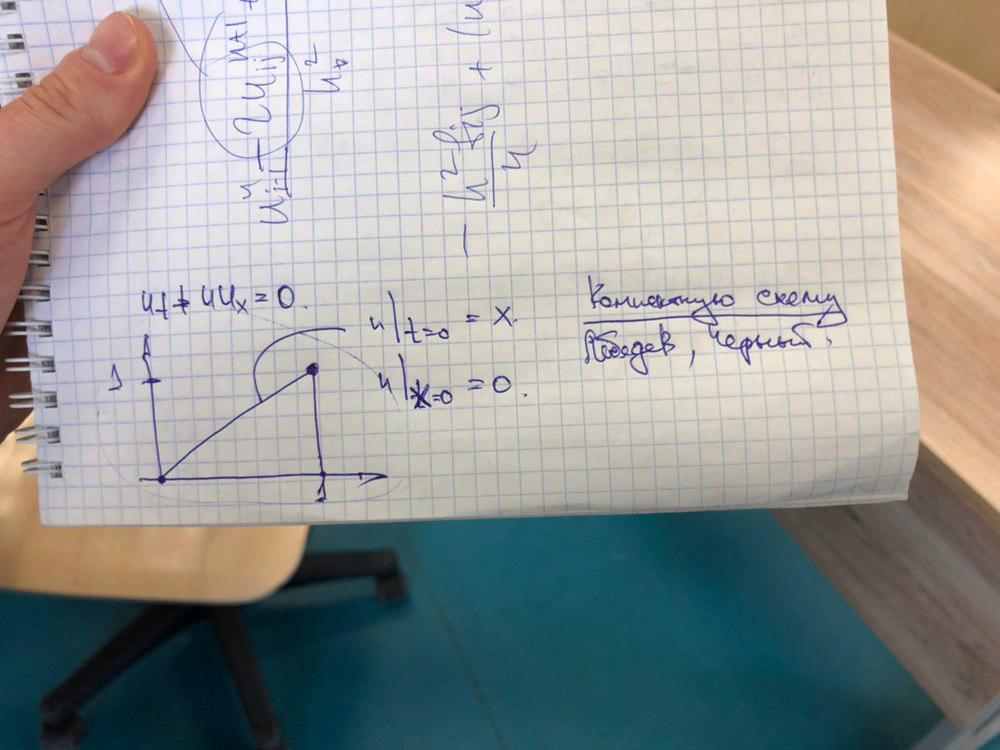 u_{i-1}^n - 2u_{ij}^{n+1} +
h_x^2
- \frac{h^2 f_{ij}}{4} + (u
u_t + uu_x = 0.
u|_{t=0} = x.
u|_{x=0} = 0.
1
1
Компактную схему
Лебедев, Черный.